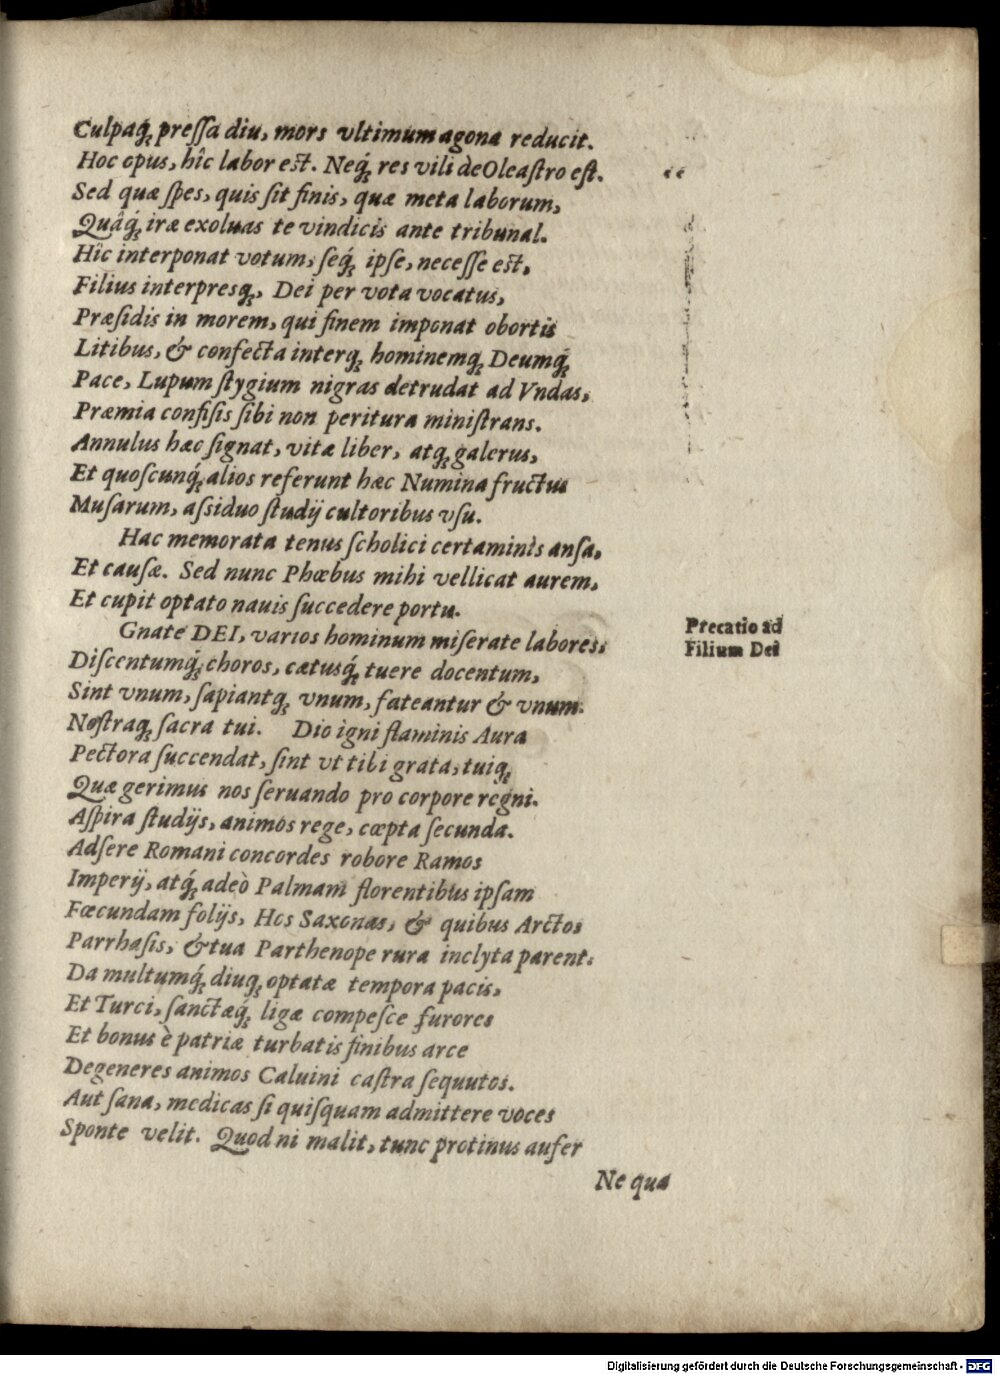 Culpaq́ꝫ preſſa diu, mors vltimum agona reducit.
Hoc opus, hîc labor est. Neq́ꝫ res vili de Oleaſtro eſt.
Sed quæ ſpes, quis ſit finis, quæ meta laborum,
Quâq́ꝫ iræ exoluas te vindicis ante tribunal.
Hîc interponat votum, ſeq́ꝫ ipſe, neceſſe eſt,
Filius interpresqꝫ Dei per vota vocatus,
Præſidis in morem, qui finem imponat obortis
Litibus, & confecta interqꝫ hominemqꝫ Deumq́ꝫ
Pace, Lupum ſtygium nigras detrudat ad Vndas,
Præmia confiſis ſibi non peritura miniſtrans.
Annulus hæc ſignat, vitæ liber, atqꝫ galerus,
Et quoſcunq́ꝫ alios referunt hæc Numina fructus
Muſarum, aſsiduo ſtudij cultoribus vſu.
Hac memorata tenus ſcholici certaminis anſa,
Et cauſæ. Sed nunc Phœbus mihi vellicat aurem,
Et cupit optato nauis ſuccedere portu.
Precatio ad
Filium Dei
Gnate DEI, varios hominum miſerate labores,
Diſcentumq́ꝫ choros, cætusq́ꝫ tuere docentum,
Sint vnum, ſapiantqꝫ vnum, fateantur & vnum.
Noſtraqꝫ ſacra tui. Dio igni flaminis Aura
Pectora ſuccendat, ſint vt tibi grata, tuiqꝫ
Quæ gerimus nos ſeruando pro corpore regni.
Aſpira ſtudijs, animos rege, cœpta ſecunda.
Adſere Romani concordes robore Ramos
Imperij, atq́ꝫ adeò Palmam florentibus ipſam
Fœcundam folijs, Hos Saxonas, & quibus Arctos
Parrhaſis, & tua Parthenope rura inclyta parent.
Da multumq́ꝫ diuqꝫ optatæ tempora pacis,
Et Turci, ſanctæq́ꝫ ligæ compeſce furores
Et bonus è patriæ turbatis finibus arce
Degeneres animos Caluini caſtra ſequutos.
Aut ſana, medicas ſi quiſquam admittere voces
Sponte velit. Quod ni malit, tunc protinus aufer
Ne qua
Digitalisierung gefördert durch die Deutsche Forschungsgemeinschaft - DFG